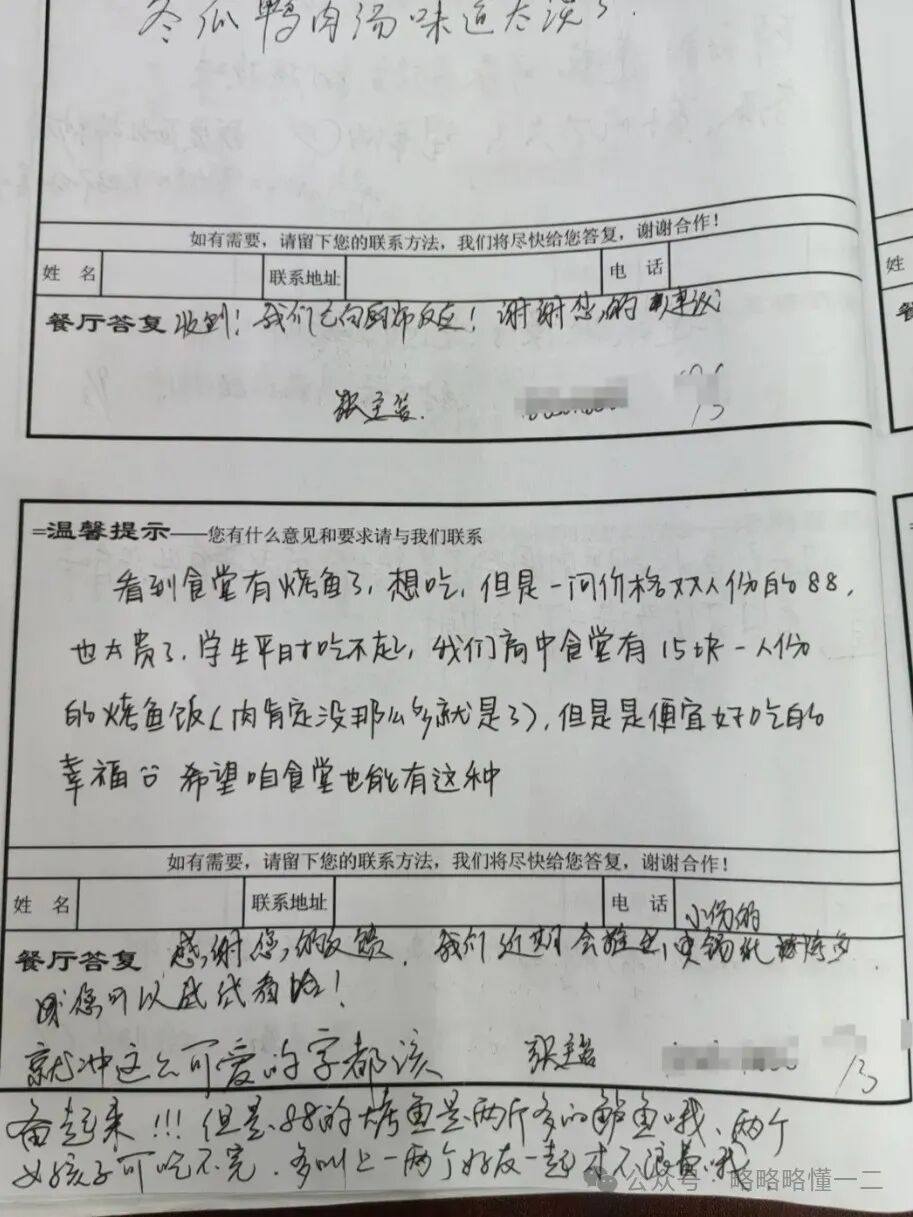 冬瓜鸭肉汤味道太淡了.
如有需要，请留下您的联系方法，我们将尽快给您答复，谢谢合作！
姓 名 联系地址 电 话
姓
餐厅答复 收到！我们已向厨师反应！谢谢您的建议
餐
张主管.
13
=温馨提示——您有什么意见和要求请与我们联系
看到食堂有烤鱼了，想吃，但是一问价格双人份的88，
也太贵了，学生平时吃不起，我们高中食堂有15块一人份
的烤鱼饭（肉肯定没那么多就是了），但是是便宜好吃的
幸福 希望咱食堂也能有这种
如有需要，请留下您的联系方法，我们将尽快给您答复，谢谢合作！
姓 名 联系地址 电 话
小份的
餐厅答复 感谢您的反馈，我们近期会推出
您可以
就冲这么可爱的字都该 张主管
13
奋起来！！！但是88的烤鱼是两斤多的鲈鱼哦、两个
女孩子可吃不完．多叫上一两个好友一起才不浪费哦
公众号·略略略懂一二